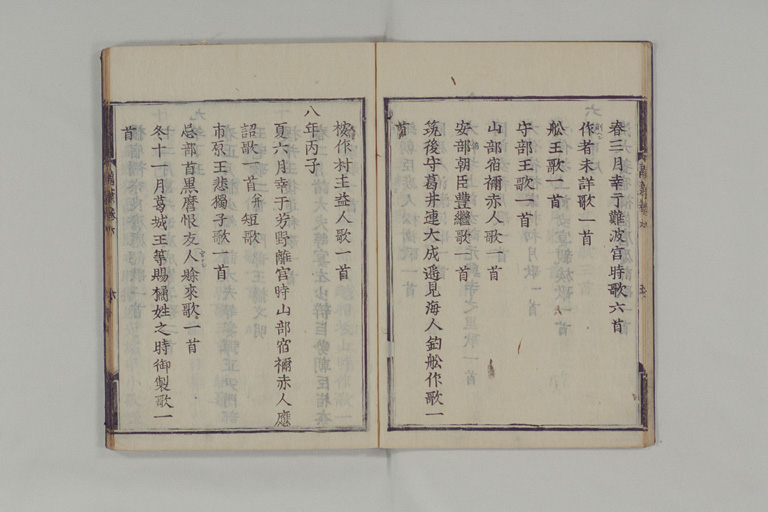 春三月幸于難波宮時歌六首
作者未詳歌一首
舩王歌一首
守部王歌一首
山部宿禰赤人歌一首
安部朝臣豊継歌一首
筑後守葛井連大成遥見海人釣舩作歌一
首
按作村主益人歌一首
八年丙子
夏六月幸于芳野離宮時山部宿禰赤人應
詔歌一首并短歌
市原王悲獨子歌一首
忌部首黒麿恨友人賖来歌一首
冬十一月葛城王等賜橘姓之時御製歌一
首